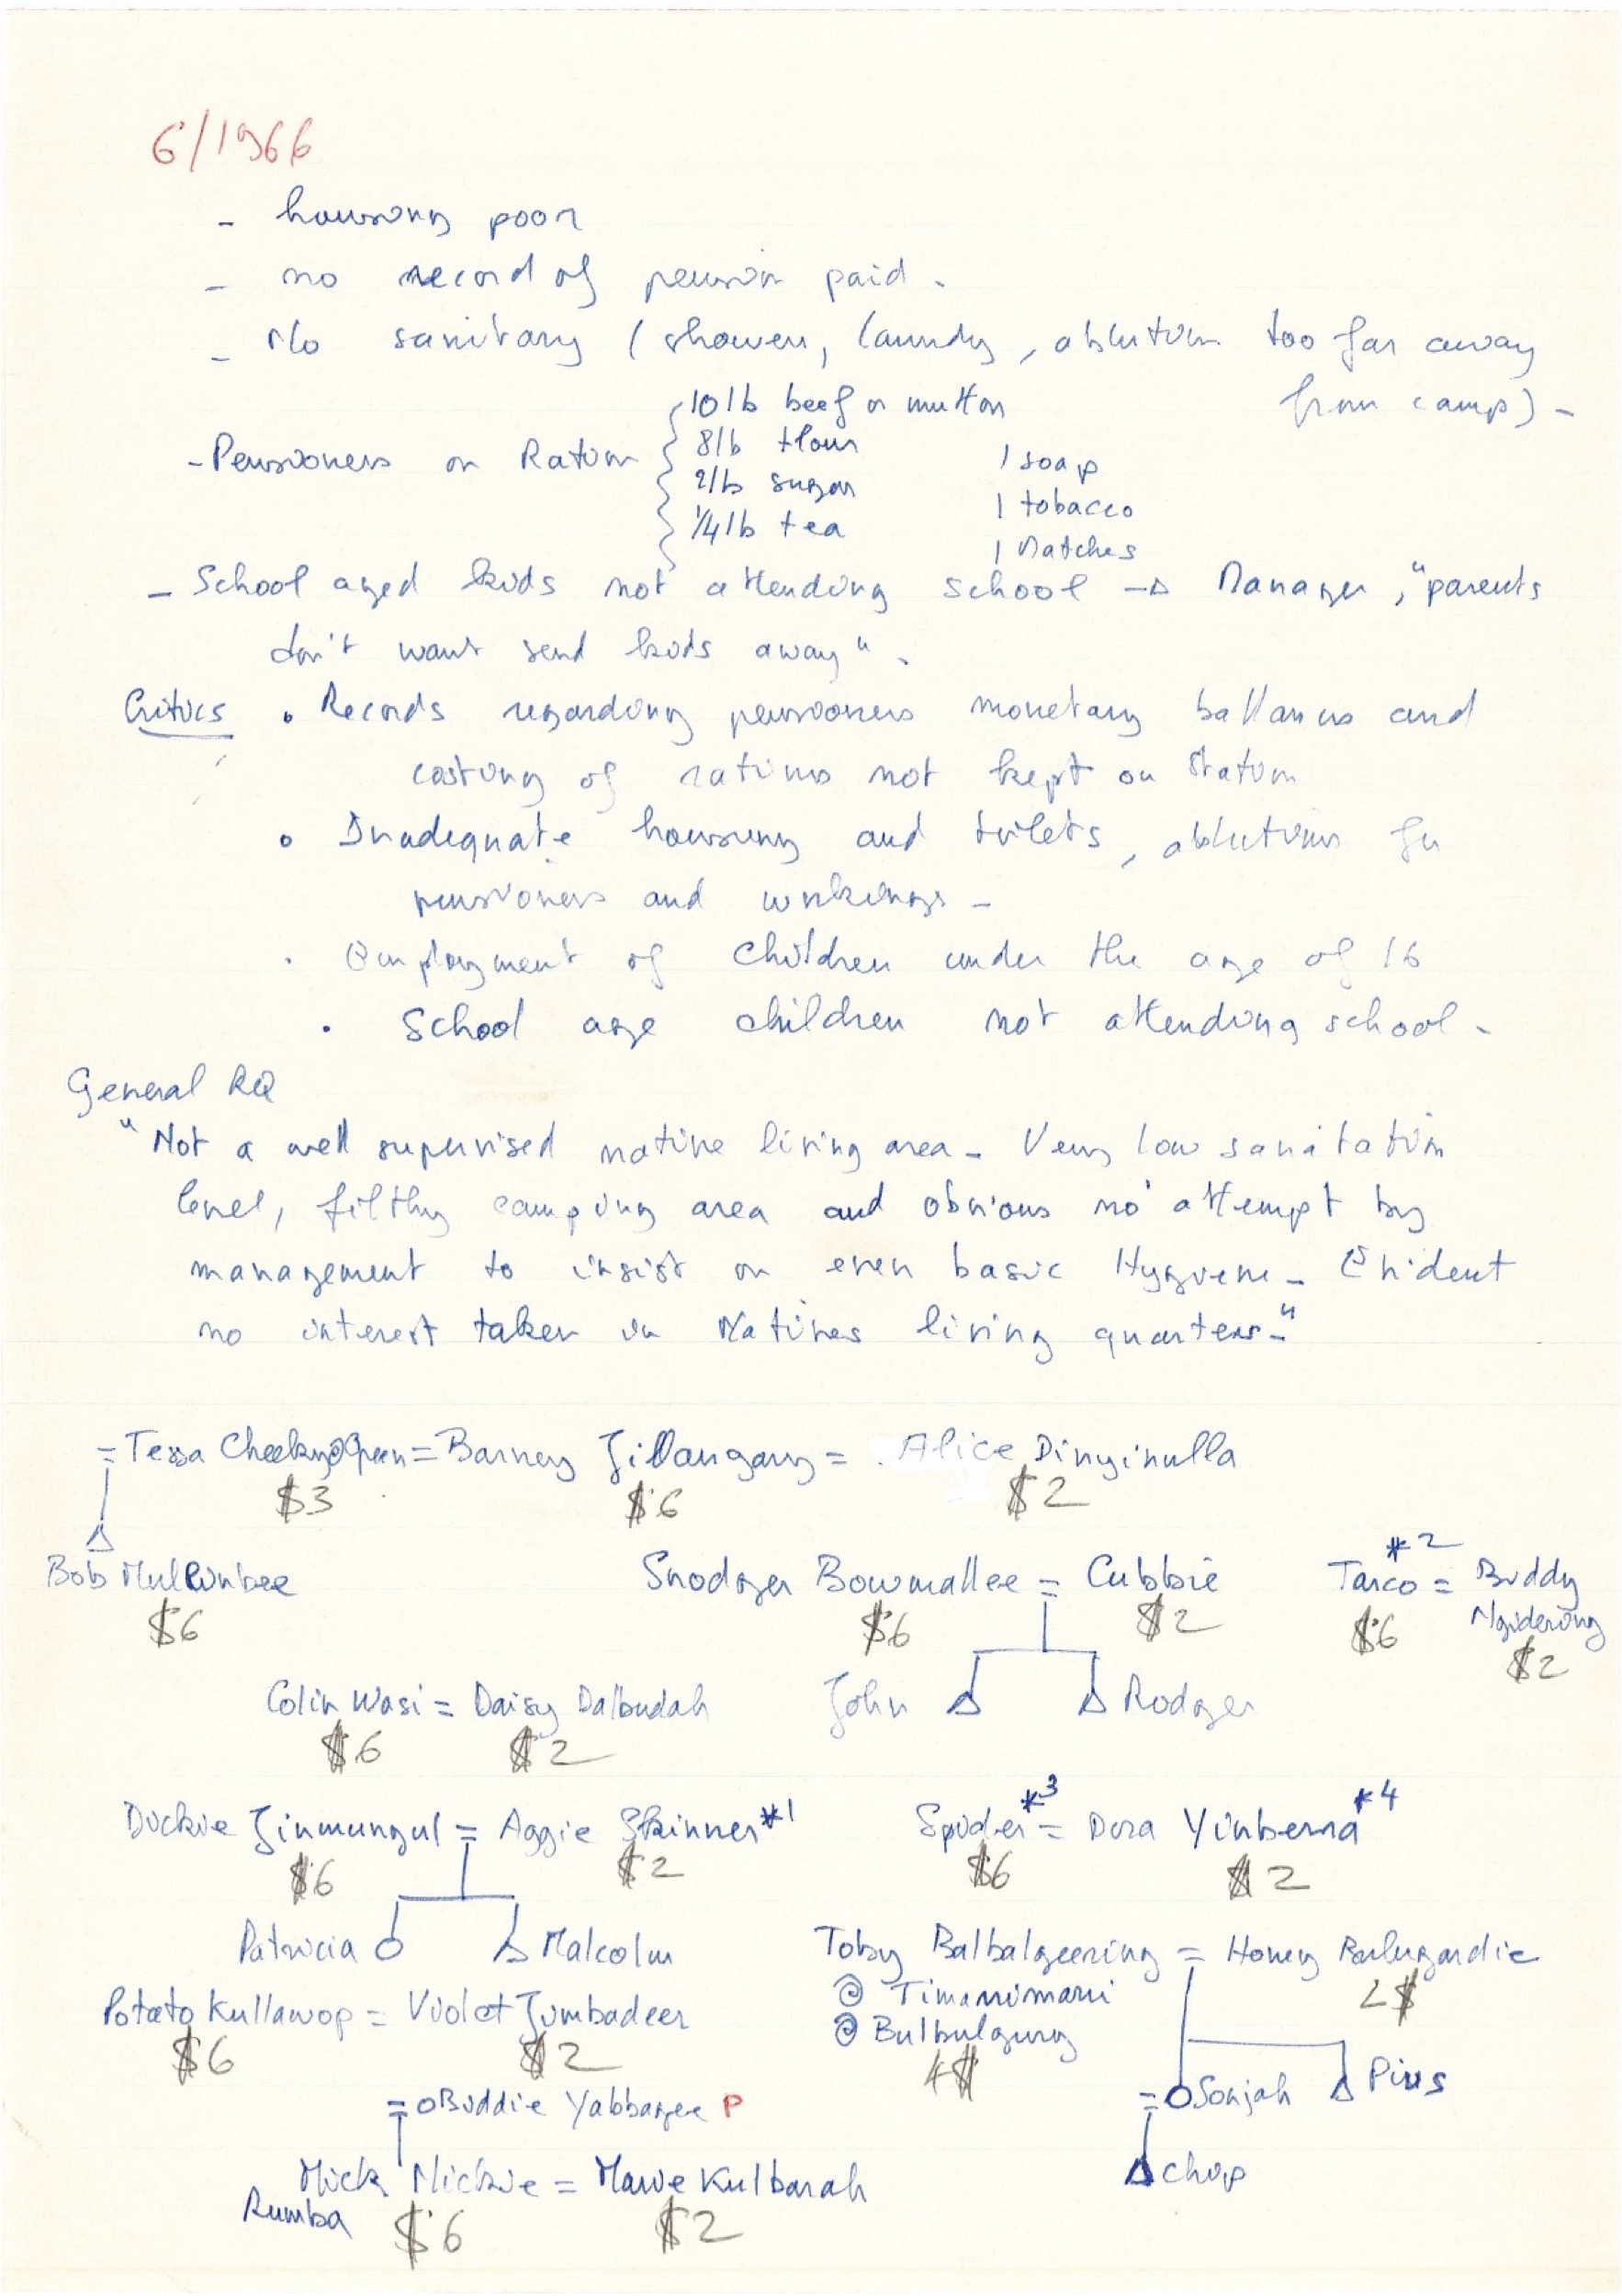 6/1966
- housing poor
- no record of pension paid.
- No sanitary (shower, laundry, ablution too far away
from camp) -
- Pensioners on Ration
10 lb beef or mutton
8 lb flour
2 lb sugar
1/4 lb tea
1 soap
1 tobacco
1 Matches
- School aged kids not attending school → Manager, "parents
don't want send kids away".
Critics • Records regarding pensioners monetary ballances and
costing of rations not kept on Station
• Inadequate housing and toilets, ablutions for
pensioners and workings -
• Employment of children under the age of 16
• School age children not attending school -
General
"Not a well supervised native living area - Very low sanitation
level, filthy camping area and obvious no attempt by
management to insist on even basic Hygiene - Evident
no interest taken in Natives living quarters -"
= Tessa Cheeky = Barney Jillangany = Alice Dinyinulla
$3 $6 $2
Bob
$6
Snodger Bowmallee = Cubbie
$6 $2
John Rodger
*2
Tarco = Biddy
Ngiderong
$6 $2
Colin Wasi = Daisy Dalbudah
$6 $2
Dickie Jinmungul = Aggie Skinner *1
$6 $2
Patricia Malcolm
Spider *3 = Dora Yinberra *4
$6 $2
Potato Kullawop = Violet Jumbadeer
$6 $2
Toby Balbalgeering = Honey
@ Timarrimarri
@ Bulbulgurg
4$ 2$
= Sonjah Pius
Chop
= Biddie Yabbagee P
Mick Mickie = Marie Kulbarah
Rumba
$6 $2